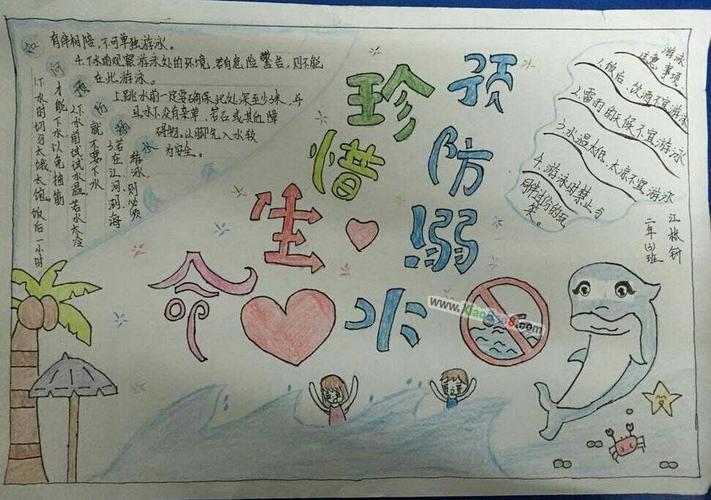 珍惜
生命
预防
溺水
如何预防溺水
1.下水时切勿太饿、太饱。饭后一小时
才能下水,以免抽筋
2.下水前试试水温,若水太冷
就不要下水
3.若在江、河、湖、海
游泳,则必须
有伴相陪,不可单独游泳。
4.下水前观察游泳处的环境,若有危险警告,则不能
在此游泳。
跳水前一定要确保此处水深至少3米,并
且水下没有杂草、岩石或其他障
碍物。以脚先入水较
为安全。
游泳
注意事项
1.饭后、饮酒不宜游泳
2.雷雨的候不宜游泳
3.水温太低、太凉不宜游泳
4.游泳时禁止与
同伴过份的玩
笑。
二年(3)班